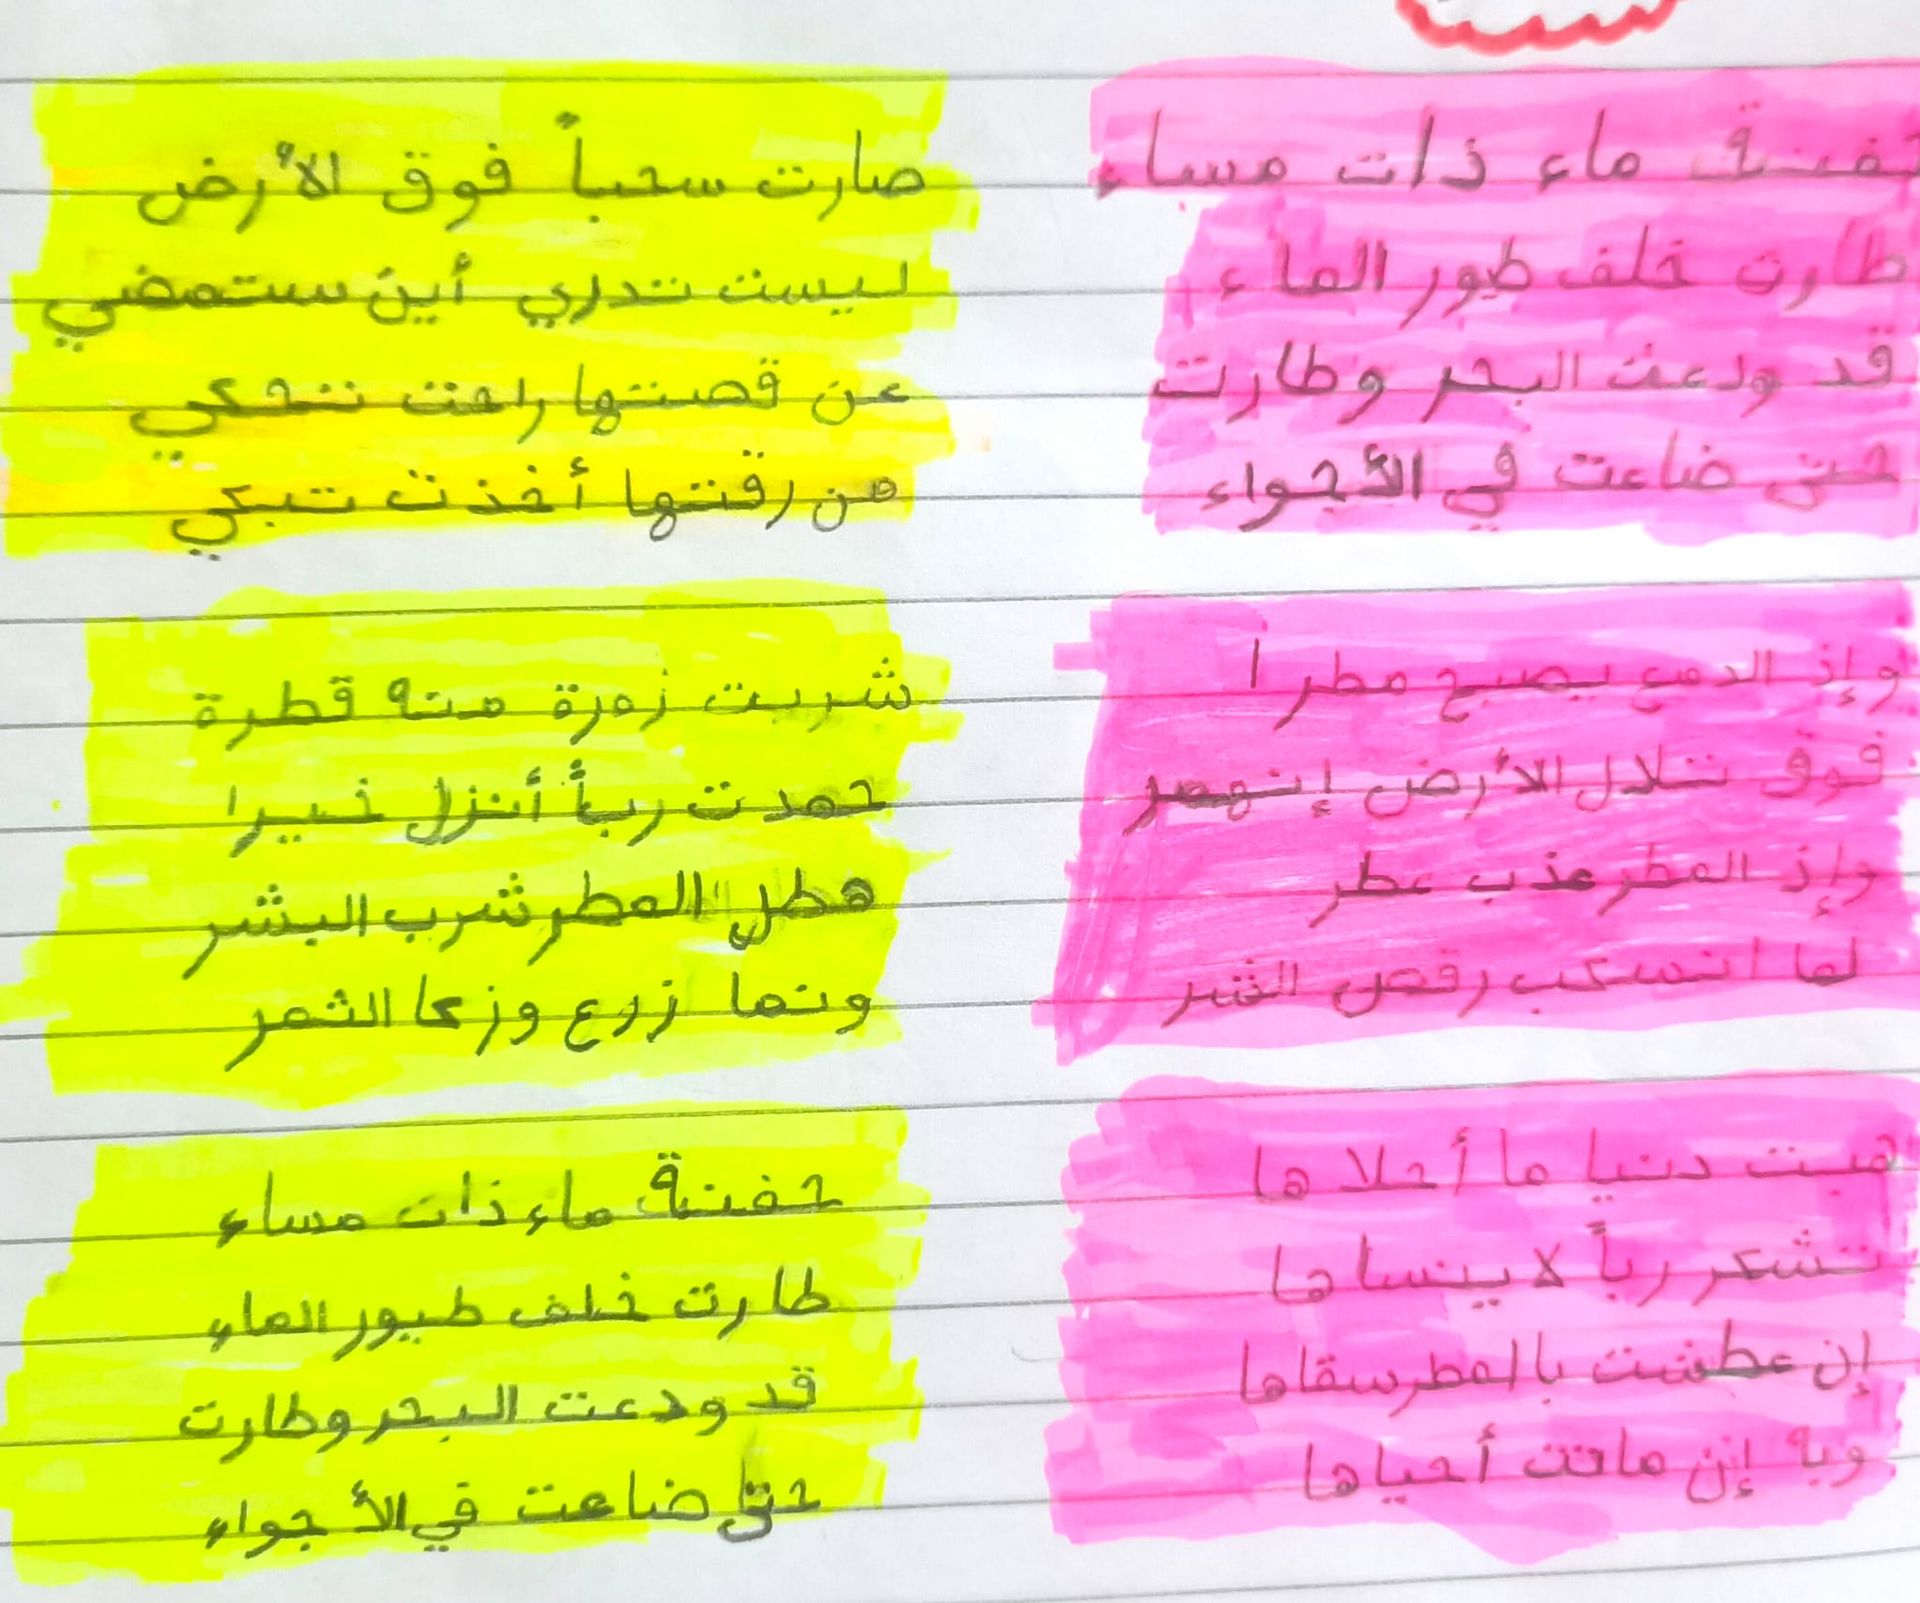 حفنة ماء ذات مساء
طارت خلف طيور الماء
قد ودعت البحر وطارت
حتى ضاعت في الأجواء
صارت سحباً فوق الأرض
ليست تدري أين ستمضي
عن قصتها راحت تحكي
من رقتها أخذت تبكي
وإذ الدمع يصبح مطرا
فوق تلال الأرض إنهمر
وإذ المطر عذب عطر
لما انسكب رقص الشجر
شربت زهرة منه قطرة
حمدت رباً أنزل خيرا
هطل المطر شرب البشر
ونما زرع وزكا الثمر
هبت دنيا ما أحلاها
تشكر رباً لا ينساها
إن عطشت بالمطر سقاها
وبه إن ماتت أحياها
حفنة ماء ذات مساء
طارت خلف طيور الماء
قد ودعت البحر وطارت
حتى ضاعت في الأجواء